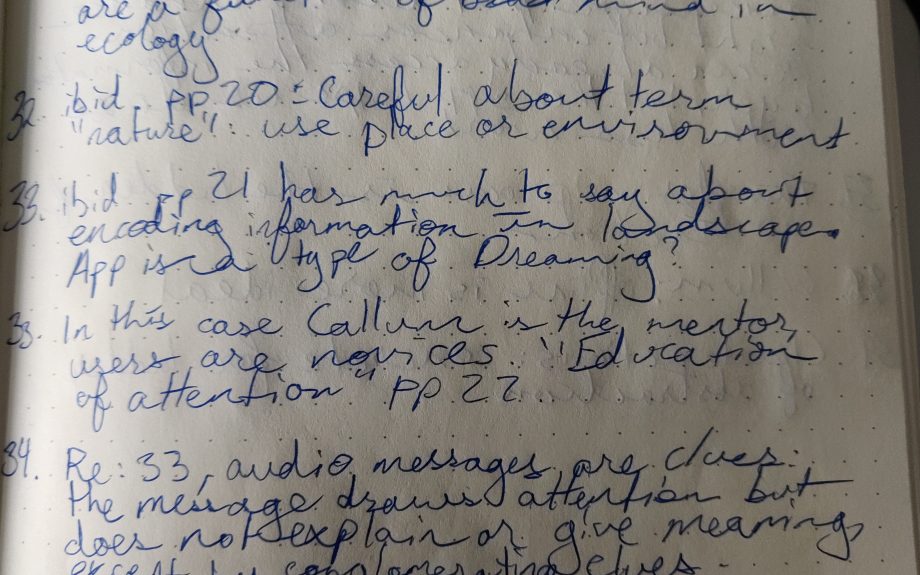 are a of mind in
ecology.
32. ibid. pp 20: Careful about term
"nature": use place or environment
33. ibid pp 21 has much to say about
encoding information in landscape.
App is a type of Dreaming?
33. In this case Callum is the mentor,
users are novices. "Education
of attention" pp 22.
34. Re: 33, audio messages are clues:
the message draws attention but
does not explain or give meaning,
except by conglomerating clues.